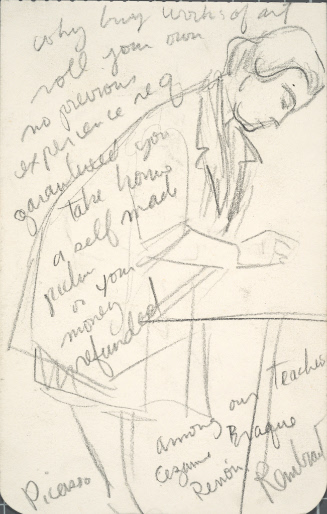 why buy works of art
roll your own
no previous
experience req
garanteed you
take home
a self made
picture
or your
money
refunded
among our teachers
Cezanne Braque
Renoir
Rembrant
Picasso